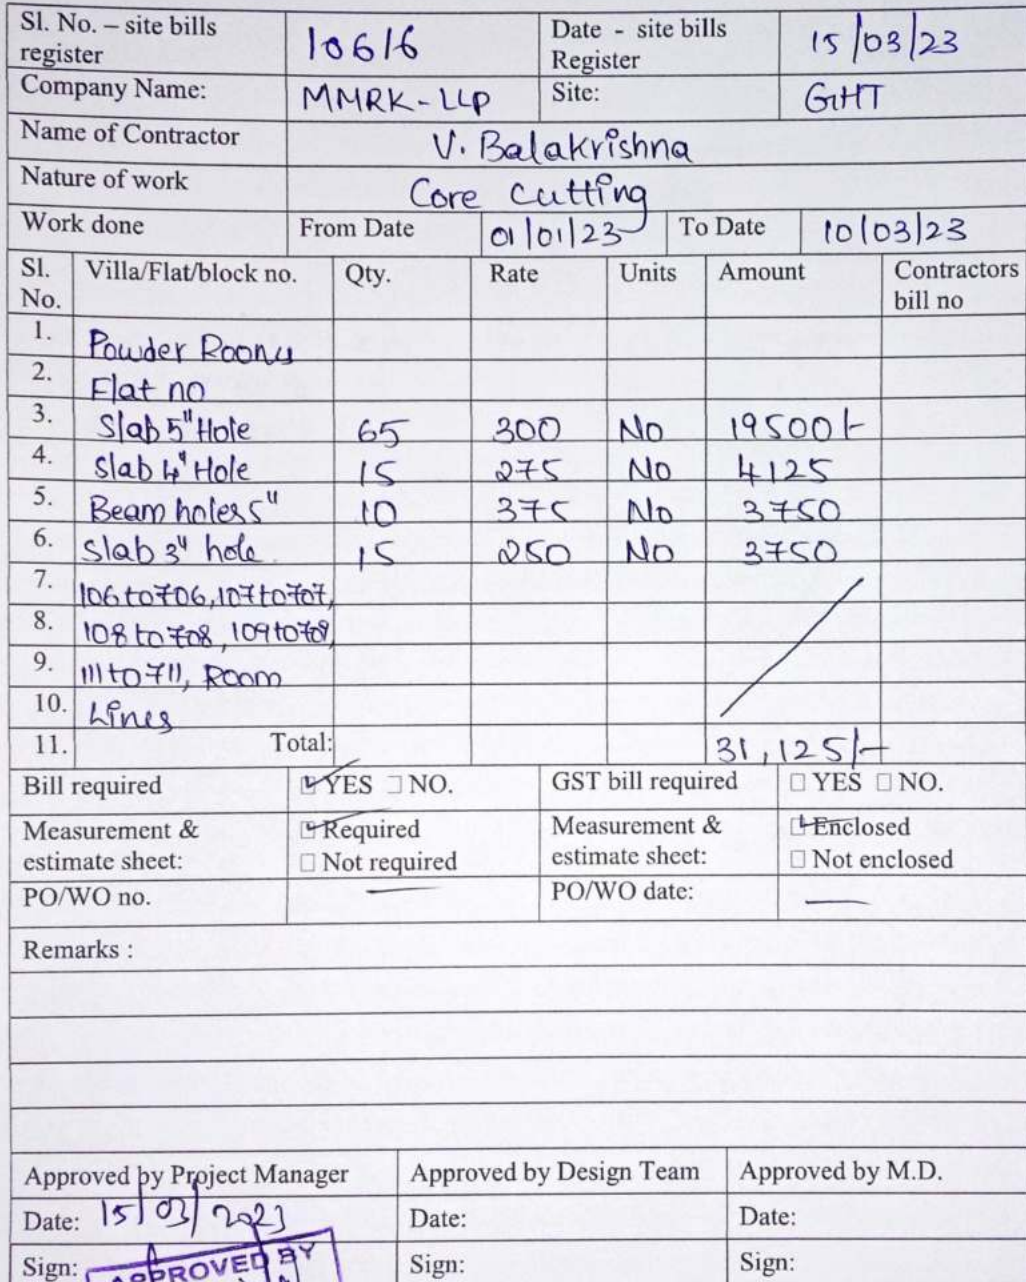 Sl. No. – site bills register 10616 Date - site bills Register 15/03/23
Company Name: MMRK-LLP Site: GHT
Name of Contractor V. Balakrishna
Nature of work Core Cutting
Work done From Date 01/01/23 To Date 10/03/23
Sl. No. Villa/Flat/block no. Qty. Rate Units Amount Contractors bill no
1. Powder Rooms
2. Flat no
3. Slab 5" Hole 65 300 No 19500/-
4. Slab 4" Hole 15 275 No 4125
5. Beam holes 5" 10 375 No 3750
6. Slab 3" hole 15 250 No 3750
7. 106 to 706, 107 to 707,
8. 108 to 708, 109 to 709,
9. 111 to 711, Room
10. Lines
11. Total: 31,125/-
Bill required YES NO. GST bill required YES NO.
Measurement & estimate sheet: Required Not required Measurement & estimate sheet: Enclosed Not enclosed
PO/WO no. — PO/WO date: —
Remarks :
Approved by Project Manager Approved by Design Team Approved by M.D.
Date: 15/03/2023 Date: Date:
Sign: APPROVED BY Sign: Sign: